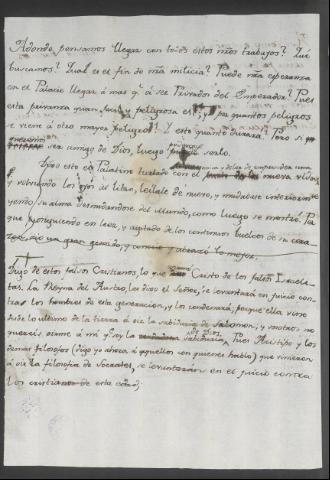 Adonde pensamos llegar con todos estos ntros trabajos? Qué
buscamos? Qual es el fin de ntra milicia? Puede ntra esperanza
en el Palacio llegar á mas q.e á ser Privados del Emperador? Pues
esta privanza quan y peligrosa es; y pa quantos peligros
se viene á otro mayor peligro? Y esto quanto durará? Pero si
ser amigo de Dios, luego puedo serlo.
Dijo esto en Palatino turbado con el de la nueva vida
y volviendo los ojos al libro, leíale de nuevo, y mudábase interiorm.te
yendo su alma desnudandose del mundo, como luego se mostró. Por
que prosiguiendo en leer, y agitado de los continuos buelcos de su cora
zon, dio un gran gemido, y conoció y abrazó lo mejor.
Digo de estos falsos Cristianos, lo que Cristo de los falsos Israeli-
tas. La Reyna del Austro, les dice el Señor, se levantará en juicio con-
tra los hombres de esta generacion, y los condenará; porque ella vino
desde lo ultimo de la tierra á oir la sabiduria de Salomon, y vosotros no
quereis oirme á mi q.e soy la Sabiduria. Pues Aristipo y los
demas filosofos (digo yo ahora á aquellos con quienes hablo) que vinieron
á oir la filosofia de Socrates, se levantarán en el juicio contra
los cristianos de esta edad;